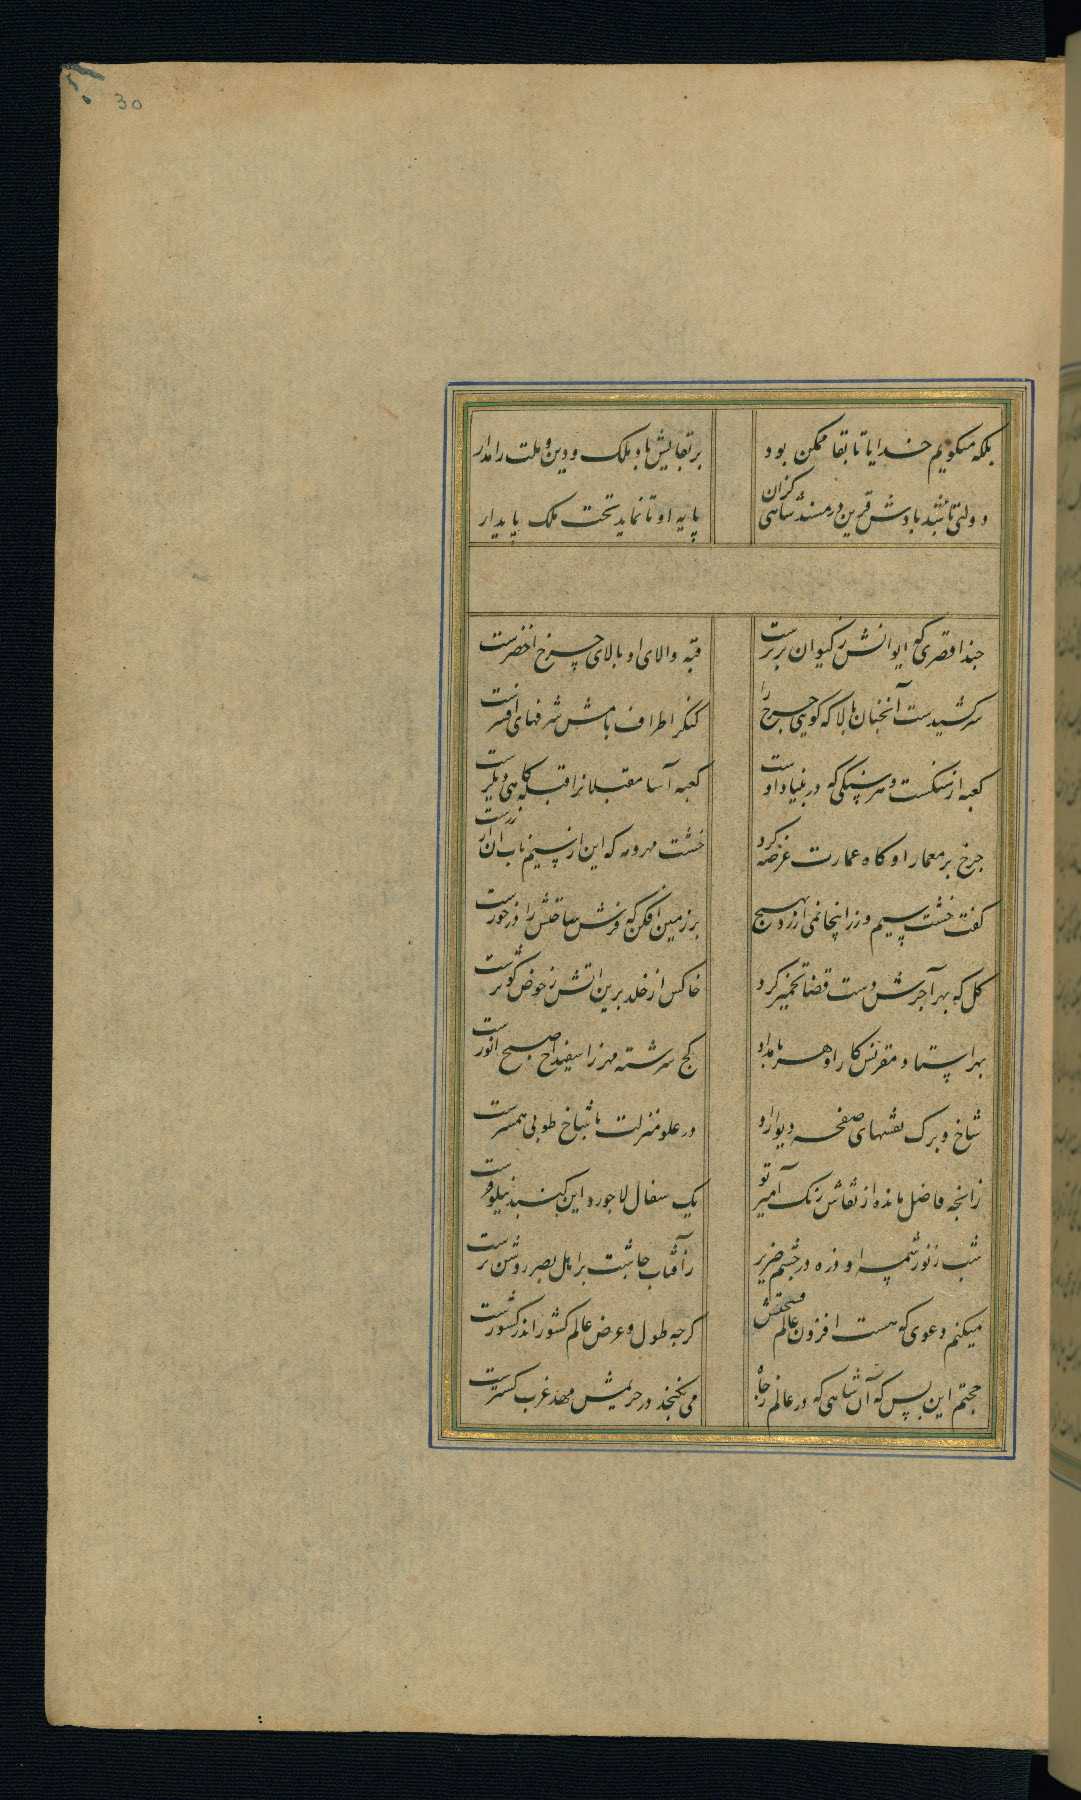 30
بلکه میکویم خدایا تا بقا ممکن بود
بر بقایش باد ملک و دین و ملت را مدار
دولتی تا شد بادش قرین در مسند شاهی کزان
پایه او تا نماید تخت ملک پایدار
حبذا قصری که ایوانش ز کیوان برترست
قبه والای او بالای چرخ اخضرست
سرکشیدست آنچنان بالا که کویی چرخ را
کنکر اطراف بامش شرفهای افسرست
کعبه از سنکست و هر سنکی که در بنیاد اوست
کعبه آسا مقبلانرا قبله کاهی دیکرست
چرخ بر معمار او کاه عمارت عرضه کرد
خشت مهر و مه که این از سیم ناب آن از زرست
کفت خشت سیم و زر اینجا نمی ارزد بهیچ
بر زمین افکن که فرش ساحتش را درخورست
کل که بهر آجرش دست قضا تخمیر کرد
خاکش از خلد برین آتش ز حوض کوثرست
بهر استاد مقرنس کار او هر بامداد
کج سرشته مهر زاسفیداج صبح انورست
شاخ و برک نقشهای صفحه دیوار او
در علو منزلت با شاخ طوبی همسرست
زانچه فاضل مانده از نقاش رنک آمیز تو
یک سفال لاجورد این کنبد نیلوفرست
شب ز نور شمسه او ذره در چشم ضریر
ز آفتاب چاشت بر اهل بصر روشن ترست
میکنم دعوی که هست افزون ز عالم فسحتش
کرچه طول و عرض عالم کشور اندر کشورست
حجتم این بس که آن شاهی که در عالم ز جاه
می نکنجد در حریمش مهد عزت کسترست